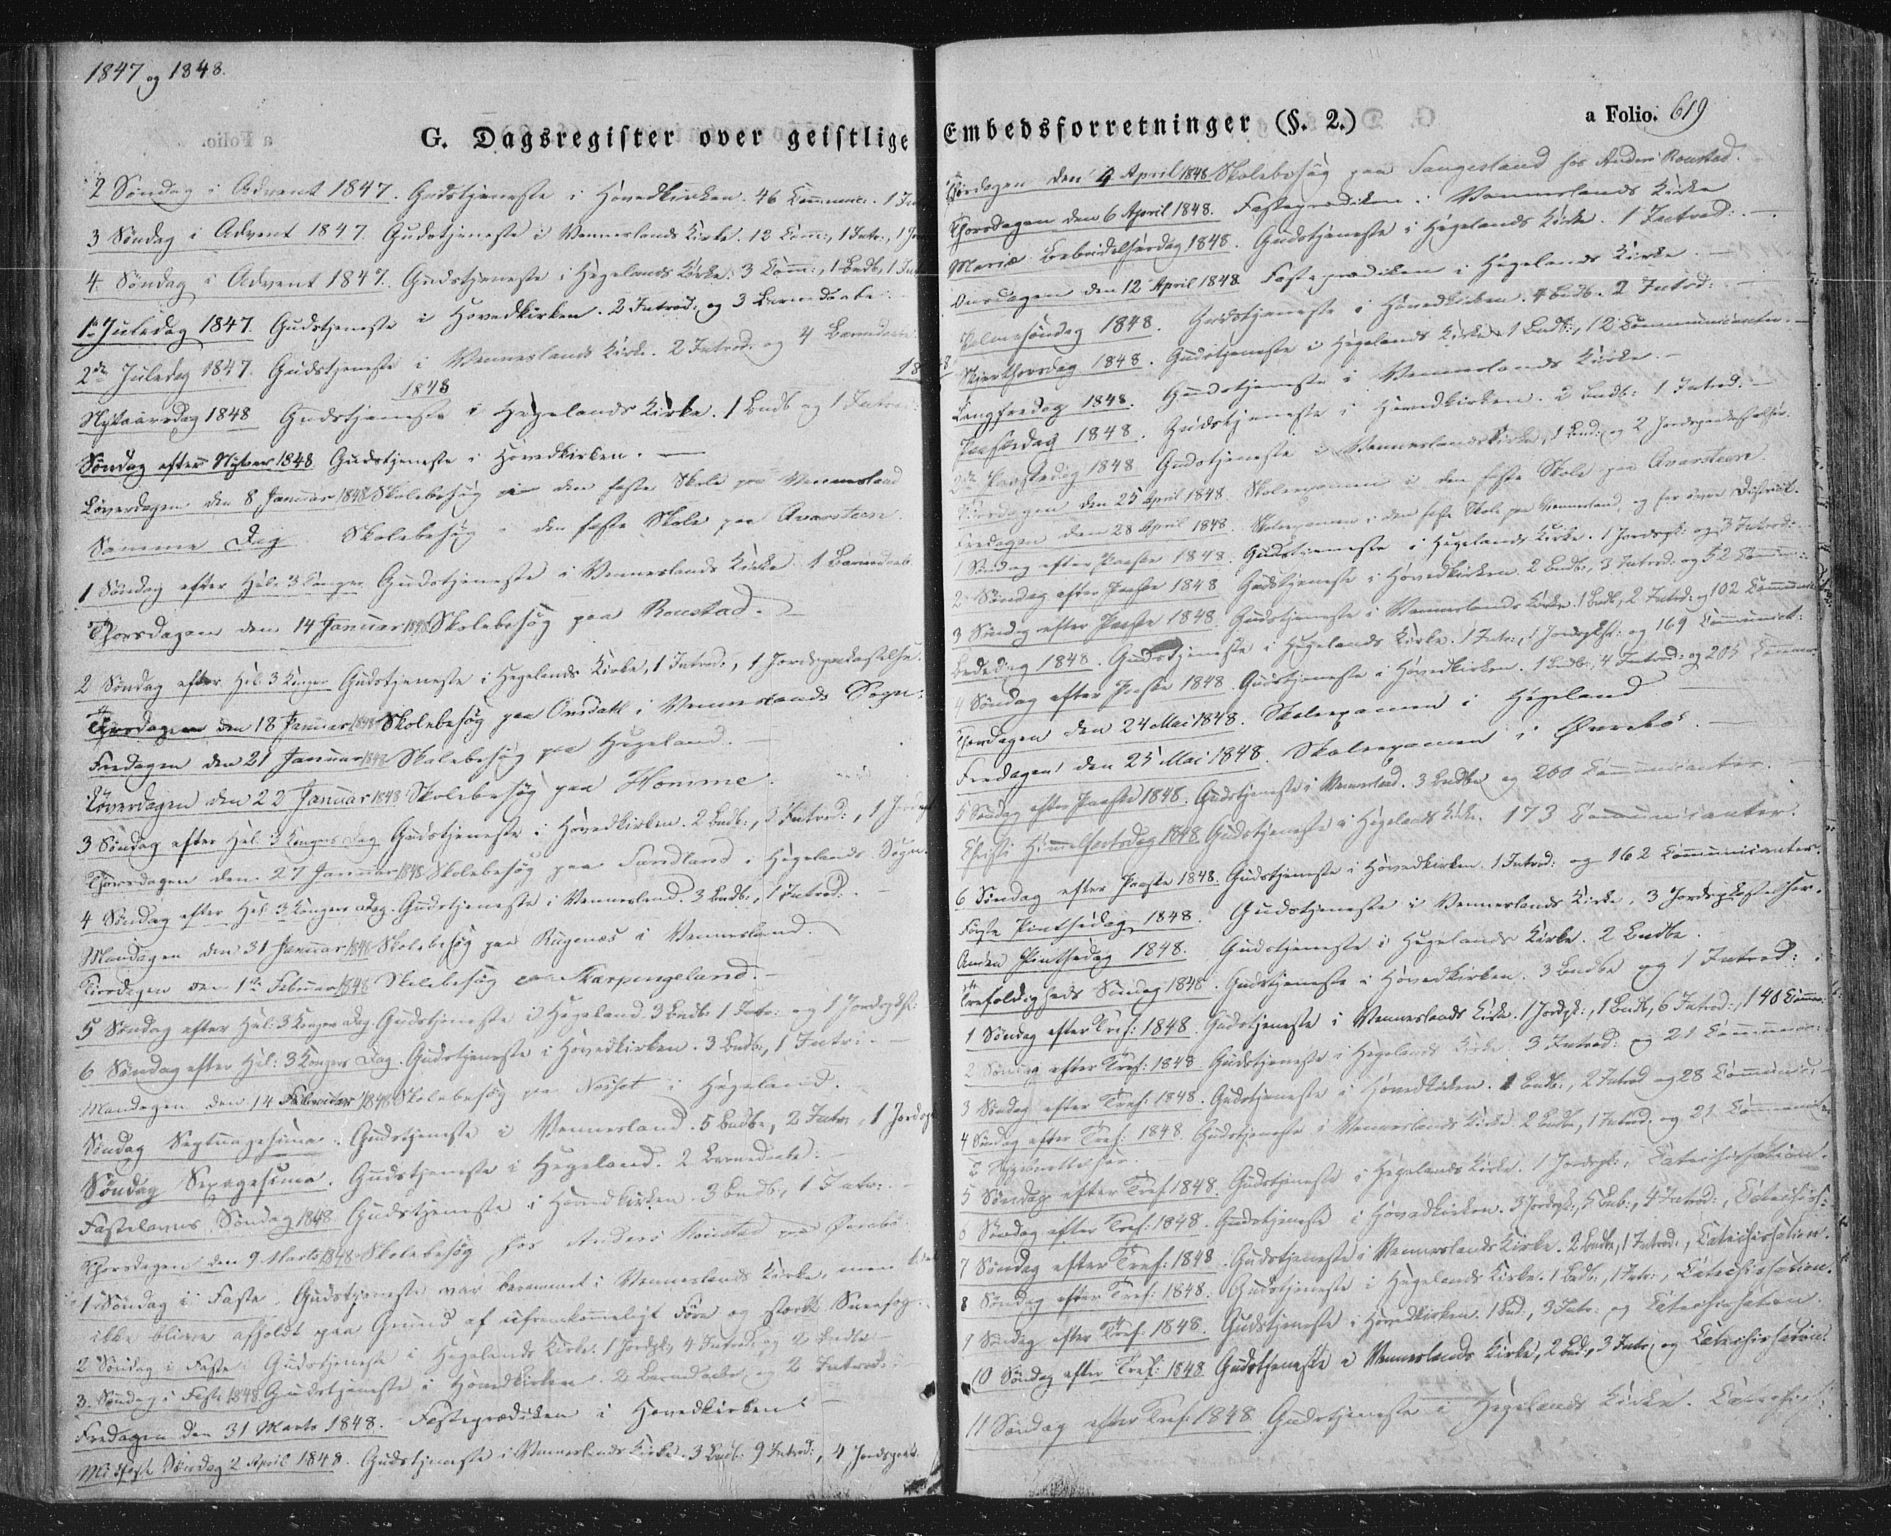 1847 og 1848.
G. Dagsregister over geistlige
2 Søndag i Advent 1847. Gudstjeneste i Hovedkirken. 46 Commun. 1
3 Søndag i Advent 1847. Gudstjeneste i Vennerslands Kirke. 12 Comm:, 1 Intr:, 1
4 Søndag i Advent 1847. Gudstjeneste i Hegelands Kirke: 3 Comm:, 1 Bndb, 1
1ste Juledag 1847. Gudstjeneste i Hovedkirken. 2 Introd: og 3 Barnedaabe.
2den Juledag 1847. Gudstjeneste i Vennerslands Kirke. 2 Introd: og 4 Barnedaabe
1848
Nytaarsdag 1848 Gudstjeneste i Hegelands Kirke. 1 Bndb og 1 Introd:
Søndag efter Nytaar 1848 Gudstjeneste i Hovedkirken. —
Løverdagen den 8 Januar 1848 Skolebesøg i den faste Skole paa Vennersland
Samme Dag Skolebesøg i den faste Skole paa Avarsteen
1 Søndag efter Hel: 3 Konger Gudstjeneste i Vennerslands Kirke 1 Barnedaab
Thorsdagen den 14 Januar 1848 Skolebesøg paa Ronstad. —
2 Søndag efter Hel: 3 Konger Gudstjeneste i Hegelands Kirke, 1 Introd:, 1 Jordspaakastelse.
den 18 Januar 1848 Skolebesøg paa Omdahl i Vennerslands Sogn:
Fredagen den 21 Januar 1848 Skolebesøg paa Hegeland. —
Løverdagen den 22 Januar 1848 Skolebesøg paa Homme.
3 Søndag efter Hel: 3 Kongers Dag Gudstjeneste i Hovedkirken. 2 Bndb:, 3 Introd:, 1
Thorsdagen den 27 Januar 1848 Skolebesøg paa Sandland i Hegelands Sogn.
4 Søndag efter Hel: 3 Kongers Dag. Gudstjeneste i Vennersland. 3 Bndb:, 1 Introd. —
Mandagen den 31 Januar 1848 Skolebesøg paa Rugenæs i Vennersland.
Tirsdagen den 1ste Februar 1848 Skolebesøg paa Skarpengeland. —
5 Søndag efter Hel: 3 Kongers Dag. Gudstjeneste i Hegeland 3 Bndb: 1 Intr: og 1 Jordspkst.
6 Søndag efter Hel: 3 Kongers Dag. Gudstjeneste i Hovedkirken. 3 Bndb:, 1 Intr:. —
Mandagen den 14 Februar 1848 Skolebesøg paa i Hegeland.
Søndag Septuagesima. Gudstjeneste i Vennersland. 5 Bndbe, 2 Intr:, 1
Søndag Sexagesima. Gudstjeneste i Hegeland. 2 Barnedaabe. —
Fastelavns Søndag 1848 Gudstjeneste i Hovedkirken. 3 Bndb, 1 Intr:. —
Thorsdagen den 9 Marts 1848 Skolebesøg hos Anders Ronstad
1 Søndag i Faste. Gudstjeneste var berammet i Vennerslands Kirke, men
ikke blive afholdt paa Grund af ufremkommeligt Føre og stærkt Sneefog.
2 Søndag i Faste. Gudstjeneste i Hegelands Kirke. 1 Jordspk, 4 Introd: og 2 Bndbe —
3. Søndag i Faste 1848 Gudstjeneste i Hovedkirken. 2 Barnedaabe og 2 Introd: —
Fredagen den 31 Marts 1848. Fasteprædiken i Hovedkirken. —
Midfaste Søndag 2 April 1848. Gudstjeneste i Vennerslands Kirke. 3 Bndb: 9 Introd:, 4
Embedsforretninger (§. 2.) a Folio. 619
den 4 April 1848 Skolebesøg paa hos Anders Ronstad.
Thorsdagen den 6 April 1848. Fasteprædiken i Vennerslands Kirke
Mariæ Bebudelsesdag 1848. Gudstjeneste i Hegelands Kirke. 1 Introd:. —
Onsdagen den 12 April 1848 Fasteprædiken i Hegelands Kirke. —
Palmesøndag 1848. Gudstjeneste i Hovedkirken. 4 Bndb. 2 Introd: —
Skjærthorsdag 1848. Gudstjeneste i Hegelands Kirke 1 Bndb:, 12 Communicanter. —
Langfredag 1848. Gudstjeneste i Vennerslands Kirke. —
Paaskedag 1848. Gudstjeneste i Hovedkirken. 2 Bndb: 1 Introd: —
2den Paaskedag 1848 Gudstjeneste i Vennerslands Kirke, 1 Bnd: og 2 Jordspaakastelser.
Tirsdagen den 25 April 1848. Skoleexamen i den faste Skole paa Avarsteen.
Fredagen den 28 April 1848. Skoleexamen i den faste Skole paa Vennersland og for District.
1 Søndag efter Paaske 1848. Gudstjeneste i Hegelands Kirke. 1 Jordspk: og 3 Introd:
2 Søndag efter Paaske 1848 Gudstjeneste i Hovedkirken. 2 Bndb:, 3 Introd: og 52 Commun:
3 Søndag efter Paaske 1848. Gudstjeneste i Vennerslands Kirke. 1 Bndb, 2 Introd: og 102
Bededag 1848. Gudstjeneste i Hegelands Kirke. 1 Intr:, 1 Jordspkst: og 169 Communict:
4 Søndag efter Paaske 1848. Gudstjeneste i Hovedkirken. 1 Bndb:, 4 Introd: og 205
den 24 Mai 1848. Skoleexamen i Hegeland
Fredagen den 25 Mai 1848. Skoleexamen i Øvrebø. —
5 Søndag efter Paaske 1848. Gudstjeneste i Vennersland. 3 Bndbe og 260 Communicanter. —
Christi Himmelfartsdag 1848. Gudstjeneste i Hegelands Kirke. 173 Communicanter.
6 Søndag efter Paaske 1848. Gudstjeneste i Hovedkirken. 1 Introd: og 162 Communicanter.
Første Pintsedag 1848. Gudstjeneste i Vennerslands Kirke. 3 Jordspkastelser.
Anden Pintsedag 1848. Gudstjeneste i Hegelands Kirke. 2 Bndbe.
Trefoldigheds Søndag 1848. Gudstjeneste i Hovedkirken. 3 Bndbe og 1 Introd:
1 Søndag efter Tref: 1848. Gudstjeneste i Vennerslands Kirke. 1 Jordspk:, 1 Bndb, 6 Introd:, 140 Comm:
2 Søndag efter Tref: 1848 Gudstjeneste i Hegelands Kirke. 3 Introd: og 21 Commun:
3 Søndag efter Tref: 1848. Gudstjeneste i Hovedkirken. 1 Bndb:, 2 Introd og 28 Communic:
4 Søndag efter Tref: 1848 Gudstjeneste i Vennerslands Kirke 2 Bndbe, 1 Introd. og 21
5 Søndag efter Tref 1848. Gudstjeneste i Hegelands Kirke. 1 Jordspk:, Catechisation.
6 Søndag efter Tref: 1848. Gudstjeneste i Hovedkirken. 3 Jordspk:, 5 Bnb:, 4 Introd:, Catechis:
7 Søndag efter Tref: 1848. Gudstjeneste i Vennerslands Kirke. 2 Bndbe, 1 Introd:, Catechisation.
8 Søndag efter Tref: 1848. Gudstjeneste i Hegelands Kirke. 1 Bndb:, 1 Intr:, Catechisation.
9 Søndag efter Tref. 1848. Gudstjeneste i Hovedkirken. 1 Bnd:, 3 Intr: og Catechisation.
10 Søndag efter Tref: 1848 Gudstjeneste i Vennerslands Kirke, 2 Bnd, 3 Intr: og Catechisation.
11 Søndag efter Tref: 1848. Gudstjeneste i Hegelands Kirke.